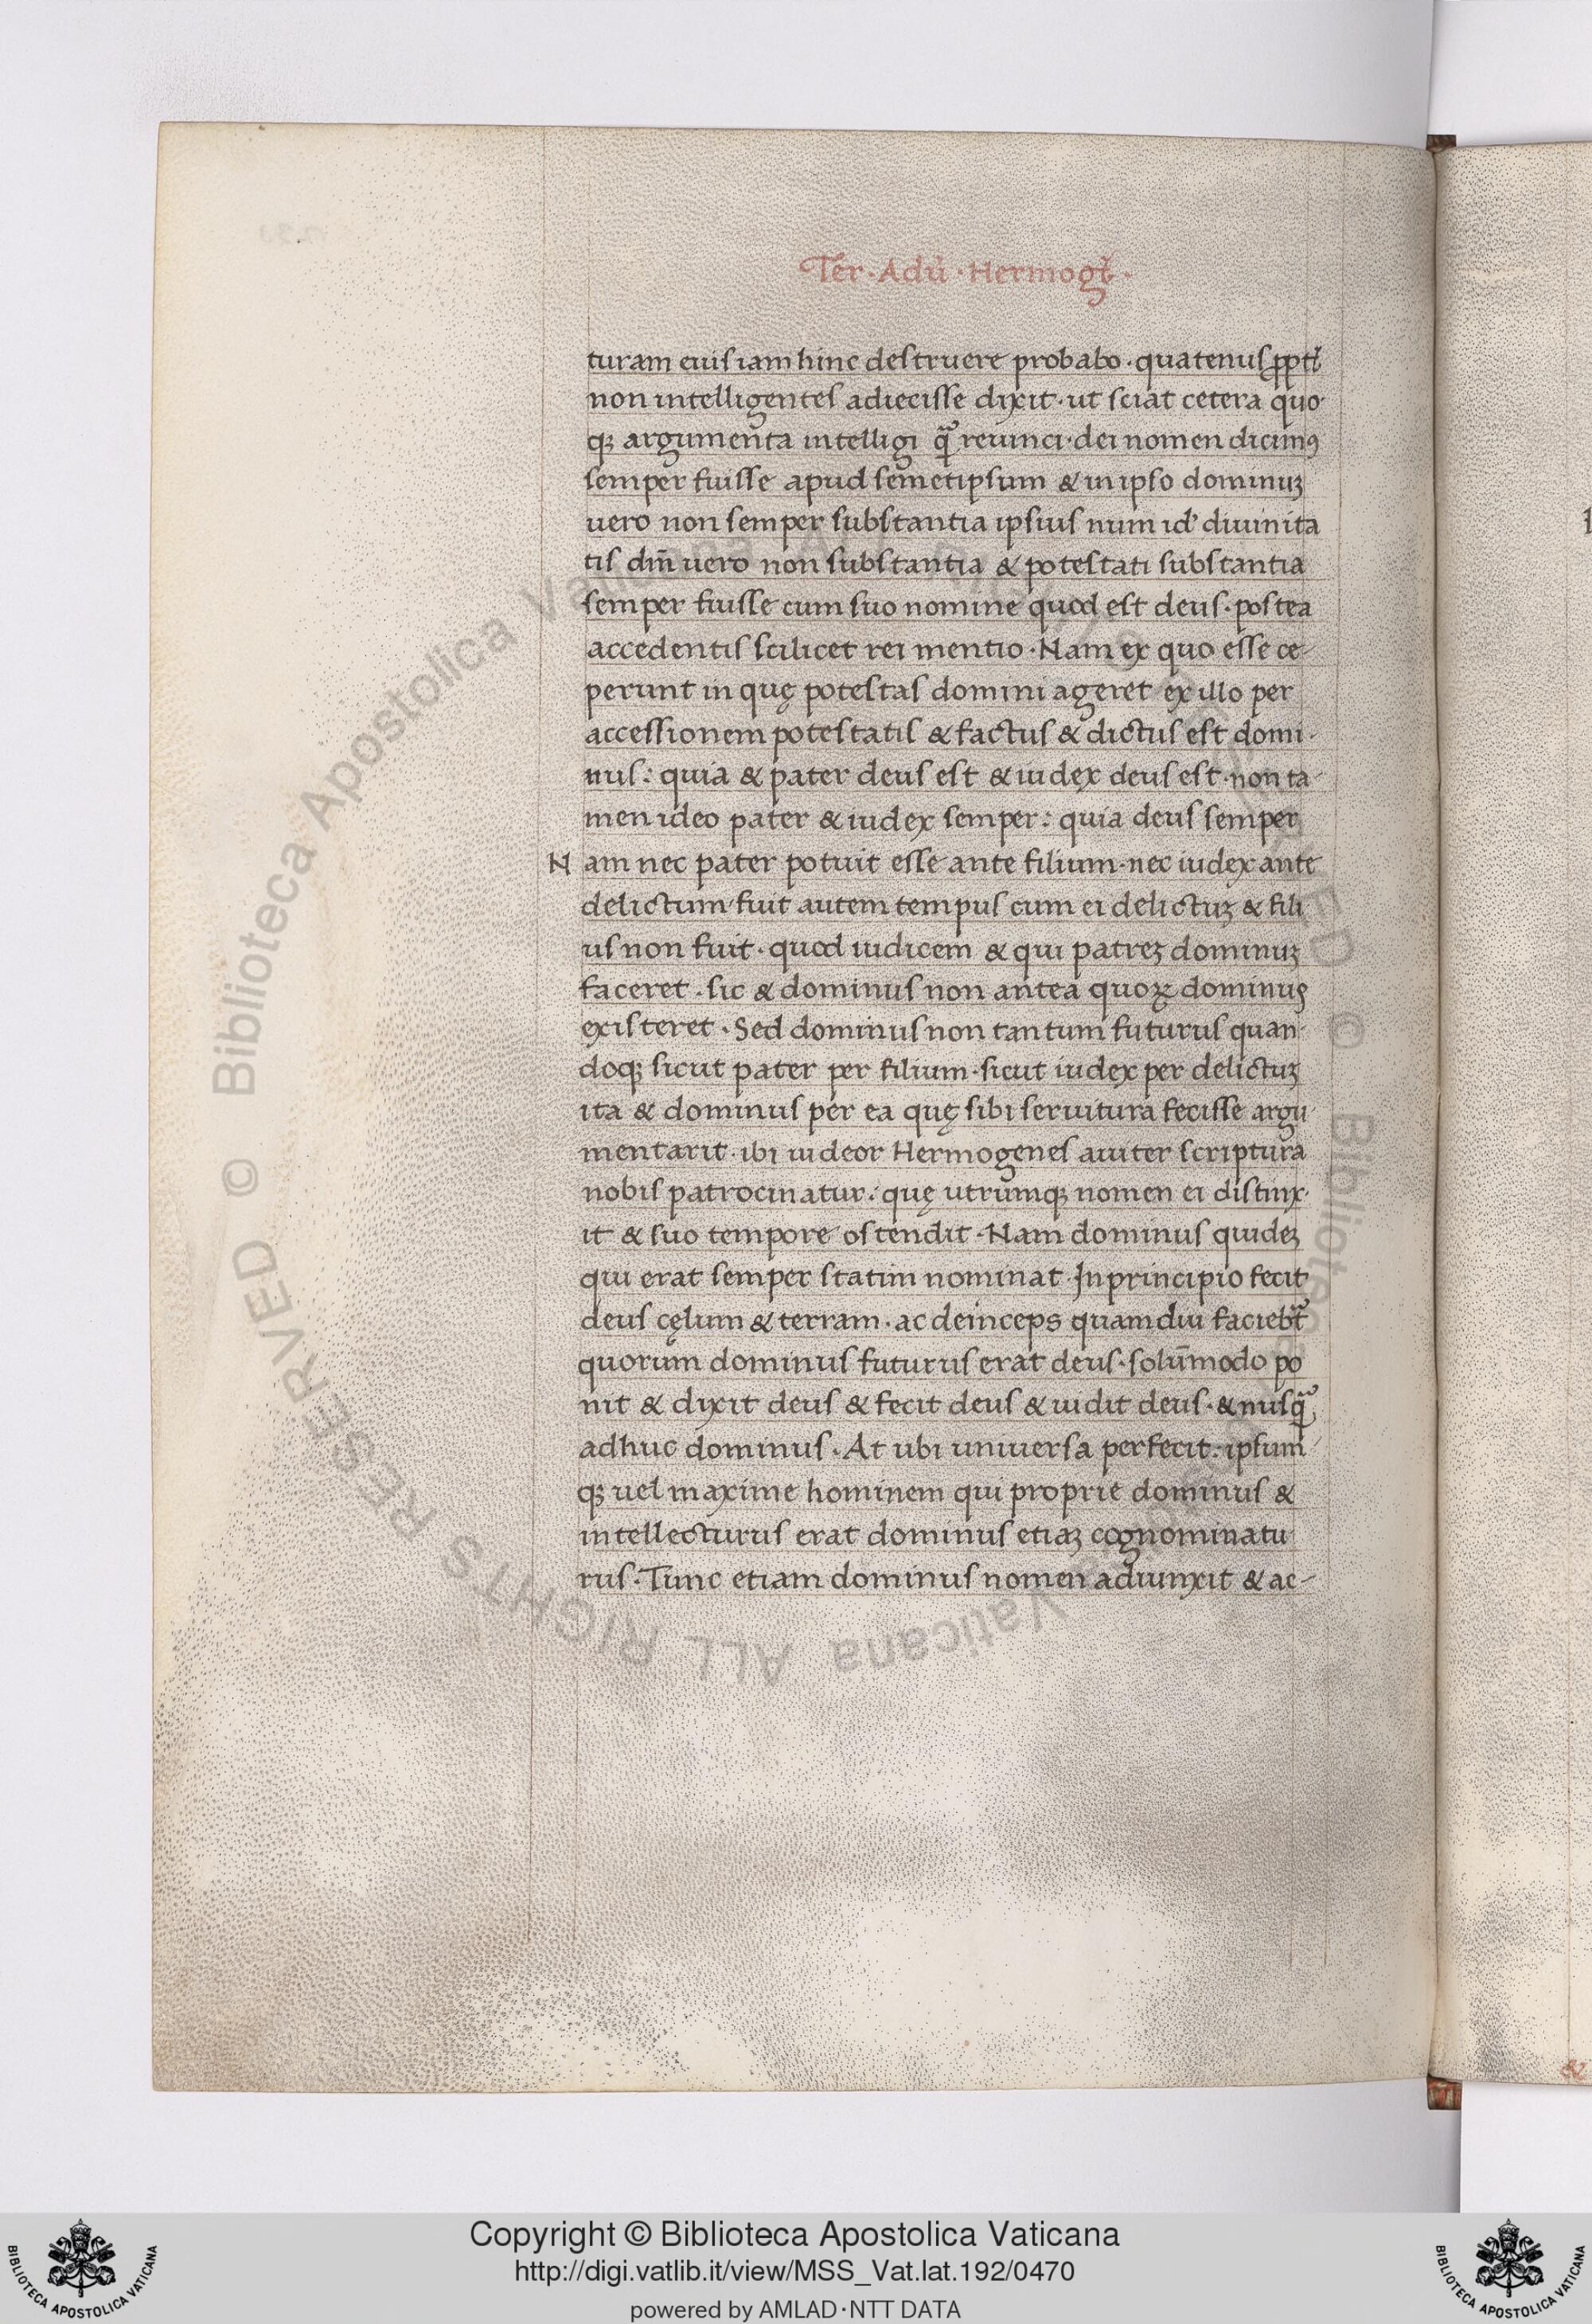 Ter · Adu̇ · Hermogt̉ ·
turam eius iam hinc destruere probabo · quatenus ꝓpt̉
non intelligentes adiecisse dixit · ut sciat cetera quo
qꝫ argumenta intelligi qͣ̃ reuinci · dei nomen dicimꝰ
semper fuisse apud semetipsum & in ipso dominuꝫ
uero non semper substantia ipsius num id diuinita
tis dm̄ uero non substantia & potestati substantia
semper fuisse cum suo nomine quod est deus · postea
accedentis scilicet rei mentio · Nam ex quo esse ce
perunt in quę potestas domini ageret ex illo per
accessionem potestatis & factus & dictus est domi
nus : quia & pater deus est & iudex deus est · non ta
men ideo pater & iudex semper : quia deus semper
N am nec pater potuit esse ante filium · nec iudex ante
delictum · fuit autem tempus cum ei delictuꝫ & fili
us non fuit · quod iudicem & qui patreꝫ dominuꝫ
faceret · sic & dominus non antea quoꝝ dominus
existeret · Sed dominus non tantum futurus quan
doqꝫ sicut pater per filium · sicut iudex per delictuꝫ
ita & dominus per ea quę sibi seruitura fecisse argu
mentarit · ibi uideor Hermogenes auiter scriptura
nobis patrocinatur : quę utrumqꝫ nomen ei distinx
it & suo tempore ostendit · Nam dominus quideꝫ
qui erat semper statim nominat · In principio fecit
deus cęlum & terram · ac deinceps quamdiu faciebt̃
quorum dominus futurus erat deus · solūmodo po
nit & dixit deus & fecit deus & uidit deus · & nusqͣ̃
adhuc dominus · At ubi uniuersa perfecit : ipsum
qꝫ uel maxime hominem qui proprie dominus &
intellecturus erat dominus etiaꝫ cognominatu
rus · Tunc etiam dominus nomen adiunxit & ac-
© Biblioteca Apostolica Vaticana ALL RIGHTS RESERVED © Biblioteca Apostolica Vaticana ALL RIGHTS RESERVED
Copyright © Biblioteca Apostolica Vaticana
http://digi.vatlib.it/view/MSS_Vat.lat.192/0470
powered by AMLAD·NTT DATA
BIBLIOTECA APOSTOLICA VATICANA
BIBLIOTECA APOSTOLICA VATICANA